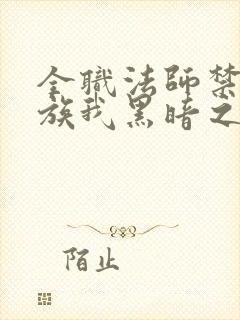 全職法師禁
族我黑暗之
陌止